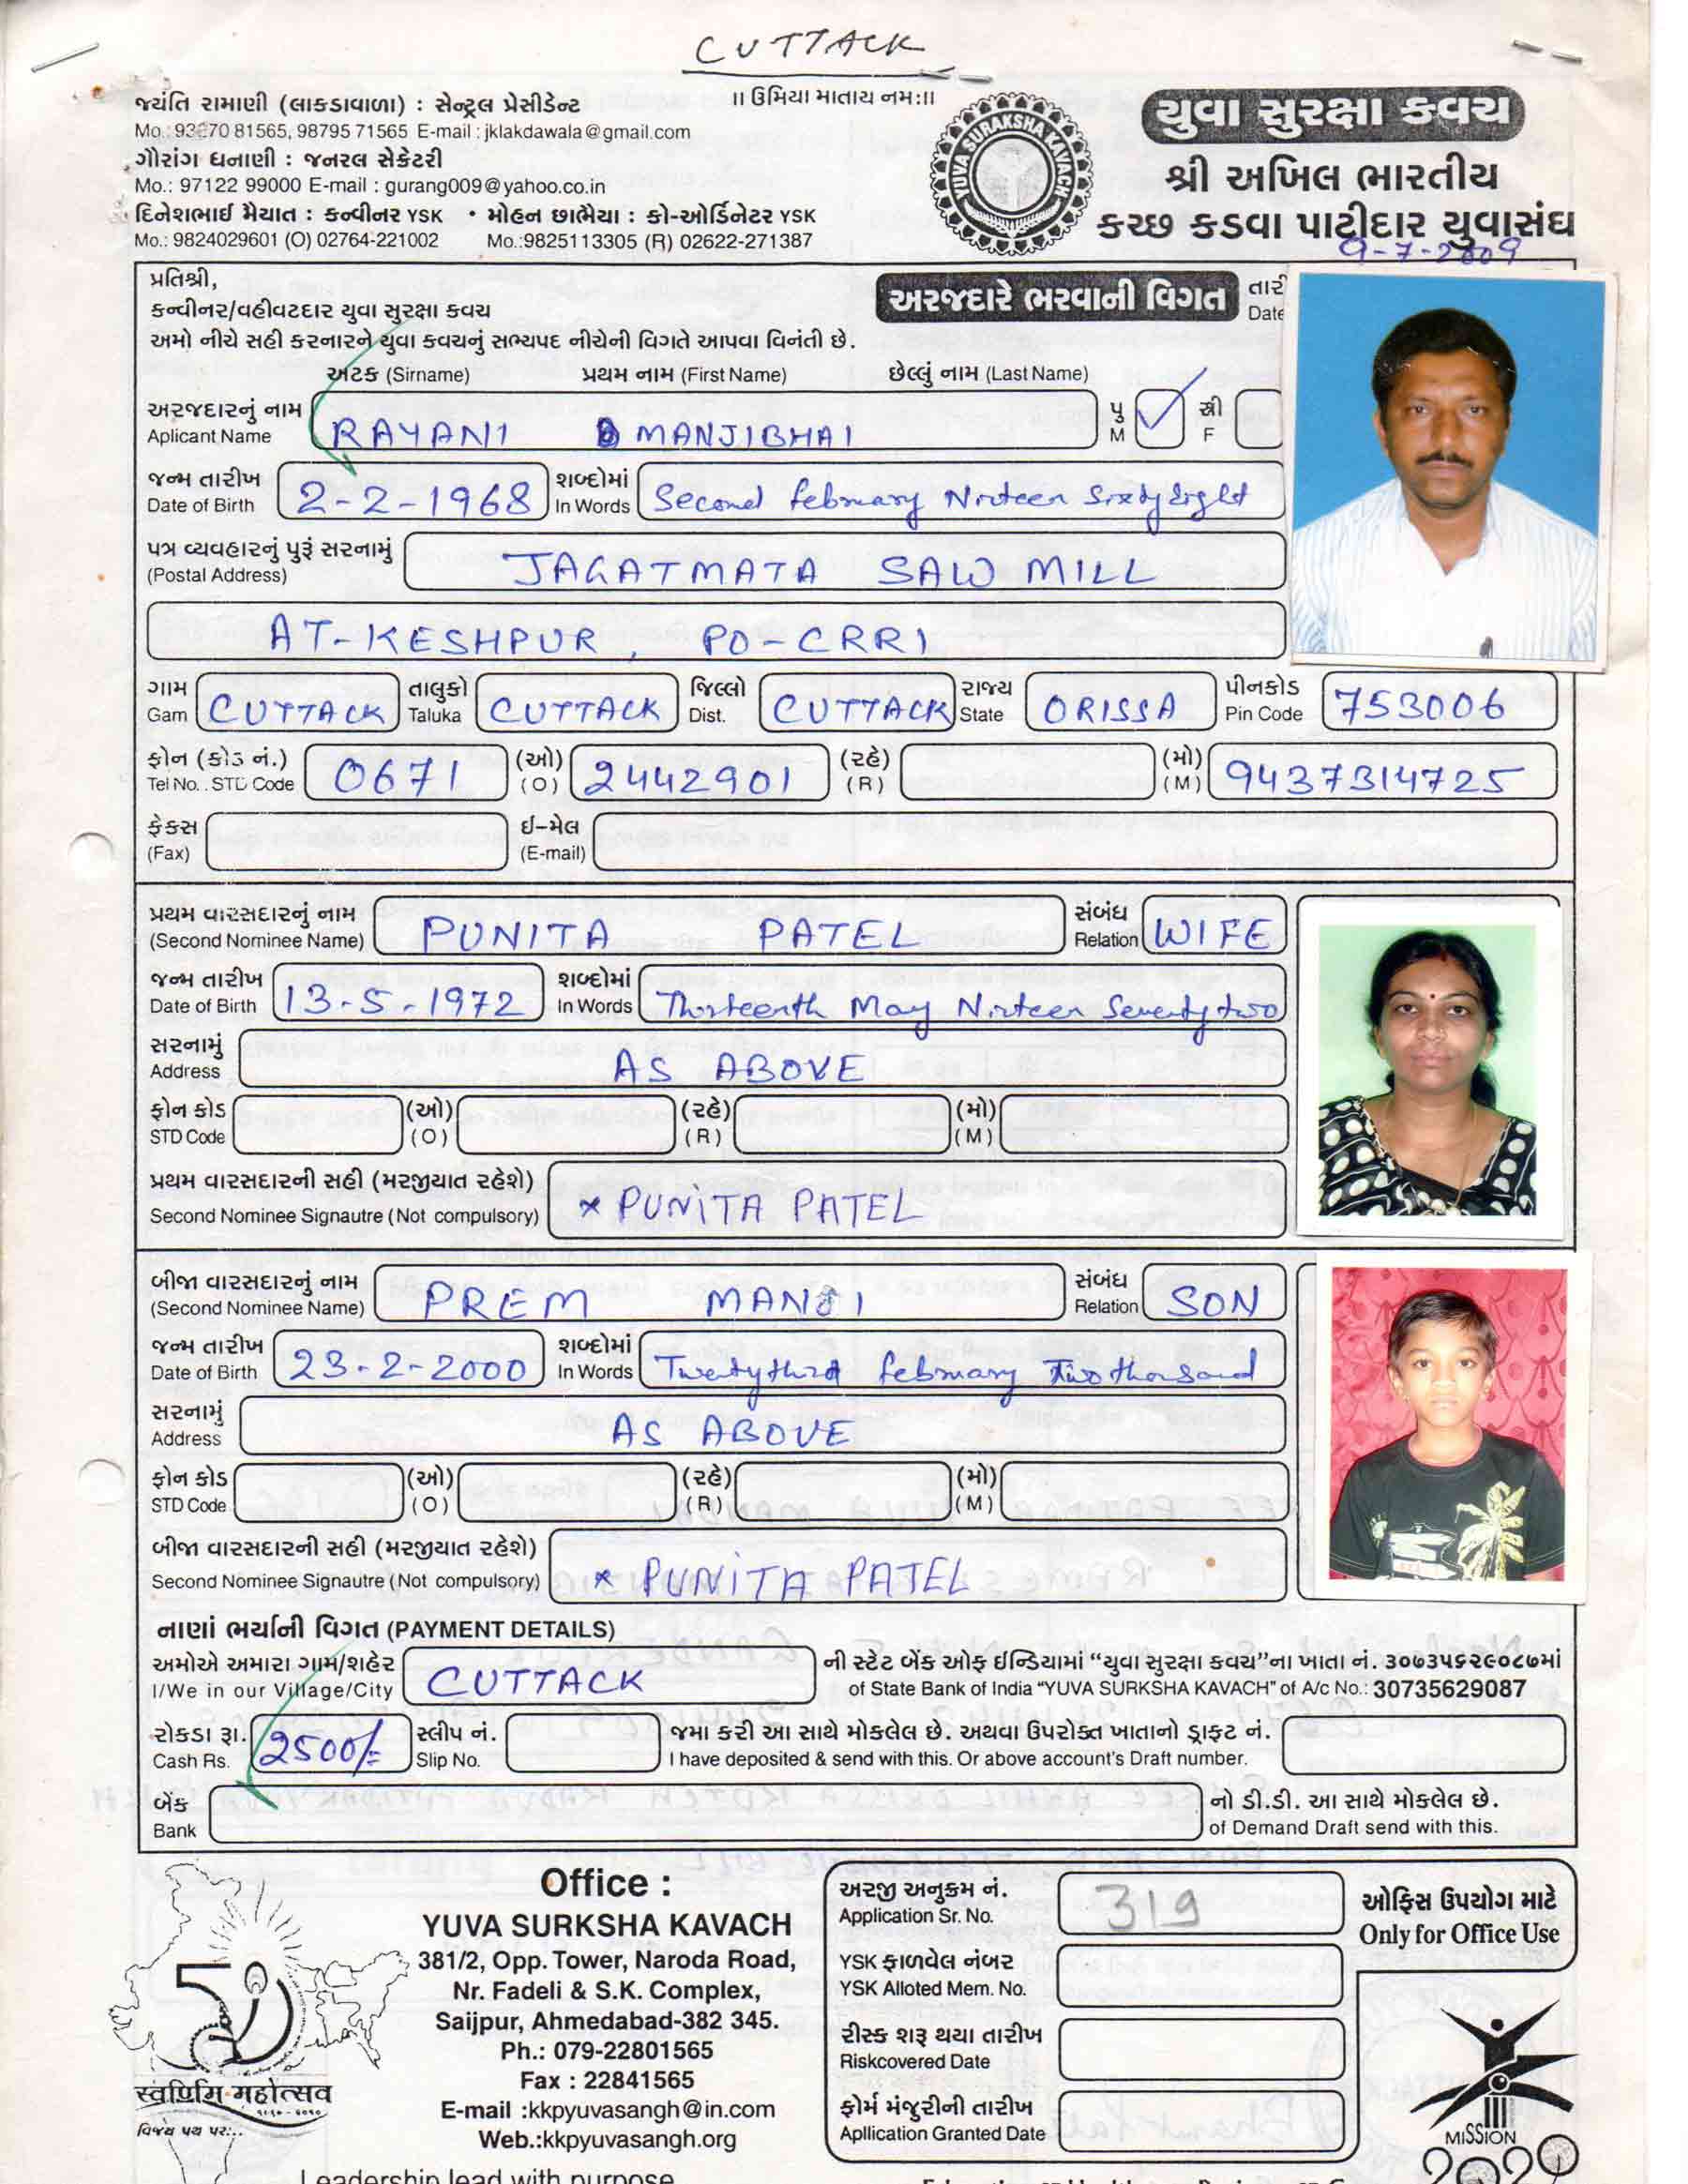 CUTTACK
જયંતિ રામાણી (લાકડાવાળા) : સેન્ટ્રલ પ્રેસીડેન્ટ
Mo.: 93270 81565, 98795 71565 E-mail : jklakdawala@gmail.com
ગૌરાંગ ધનાણી : જનરલ સેક્રેટરી
Mo.: 97122 99000 E-mail : gurang009@yahoo.co.in
દિનેશભાઈ મૈયાત : કન્વીનર YSK • મોહન છાભૈયા : કો-ઓર્ડિનેટર YSK
Mo.: 9824029601 (O) 02764-221002 Mo.:9825113305 (R) 02622-271387
।। ઉમિયા માતાય નમ:।।
YUVA SURAKSHA KAVACH
યુવા સુરક્ષા કવચ
શ્રી અખિલ ભારતીય
કચ્છ કડવા પાટીદાર યુવાસંઘ
9-7-2009
પ્રતિશ્રી,
કન્વીનર/વહીવટદાર યુવા સુરક્ષા કવચ
અરજદારે ભરવાની વિગત
Date
અમો નીચે સહી કરનારને યુવા કવચનું સભ્યપદ નીચેની વિગતે આપવા વિનંતી છે.
અટક (Sirname) પ્રથમ નામ (First Name) છેલ્લું નામ (Last Name)
અરજદારનું નામ
Aplicant Name RAYANI MANJIBHAI પુ M ✓ સ્ત્રી F
જન્મ તારીખ શબ્દોમાં
Date of Birth 2-2-1968 In Words Second february Ninteen Sixty Eight
પત્ર વ્યવહારનું પુરૂં સરનામું
(Postal Address) JAGATMATA SAW MILL
AT-KESHPUR, PO-CRRI
ગામ તાલુકો જિલ્લો રાજ્ય પીનકોડ
Gam CUTTACK Taluka CUTTACK Dist. CUTTACK State ORISSA Pin Code 753006
ફોન (કોડ નં.) (ઓ) (રહે) (મો)
Tel No.. STD Code 0671 (O) 2442901 (R) (M) 9437314725
ફેકસ ઈ-મેલ
(Fax) (E-mail)
પ્રથમ વારસદારનું નામ સંબંધ
(Second Nominee Name) PUNITA PATEL Relation WIFE
જન્મ તારીખ શબ્દોમાં
Date of Birth 13-5-1972 In Words Thirteenth May Ninteen Seventy two
સરનામું
Address AS ABOVE
ફોન કોડ (ઓ) (રહે) (મો)
STD Code (O) (R) (M)
પ્રથમ વારસદારની સહી (મરજીયાત રહેશે)
Second Nominee Signautre (Not compulsory) × PUNITA PATEL
બીજા વારસદારનું નામ સંબંધ
(Second Nominee Name) PREM MANJI Relation SON
જન્મ તારીખ શબ્દોમાં
Date of Birth 23-2-2000 In Words Twenty third february Two thousand
સરનામું
Address AS ABOVE
ફોન કોડ (ઓ) (રહે) (મો)
STD Code (O) (R) (M)
બીજા વારસદારની સહી (મરજીયાત રહેશે)
Second Nominee Signautre (Not compulsory) × PUNITA PATEL
નાણાં ભર્યાની વિગત (PAYMENT DETAILS)
અમોએ અમારા ગામ/શહેર ની સ્ટેટ બેંક ઓફ ઈન્ડિયામાં “યુવા સુરક્ષા કવચ”ના ખાતા નં. ૩૦૭૩૫૬૨૯૦૮૭માં
I/We in our Village/City CUTTACK of State Bank of India “YUVA SURKSHA KAVACH” of A/c No.: 30735629087
રોકડા રૂા. સ્લીપ નં. જમા કરી આ સાથે મોકલેલ છે. અથવા ઉપરોક્ત ખાતાનો ડ્રાફ્ટ નં.
Cash Rs. 2500/= Slip No. I have deposited & send with this. Or above account's Draft number.
બેંક નો ડી.ડી. આ સાથે મોકલેલ છે.
Bank of Demand Draft send with this.
Office :
YUVA SURKSHA KAVACH
381/2, Opp. Tower, Naroda Road,
Nr. Fadeli & S.K. Complex,
Saijpur, Ahmedabad-382 345.
Ph.: 079-22801565
Fax : 22841565
E-mail :kkpyuvasangh@in.com
Web.:kkpyuvasangh.org
અરજી અનુક્રમ નં.
Application Sr. No. 319
ઓફિસ ઉપયોગ માટે
Only for Office Use
YSK ફાળવેલ નંબર
YSK Alloted Mem. No.
રીસ્ક શરૂ થયા તારીખ
Riskcovered Date
ફોર્મ મંજુરીની તારીખ
Apllication Granted Date
50
મહોત્સવ
વિજય પથ પર...
MISSION
2020
Leadership lead with purpose